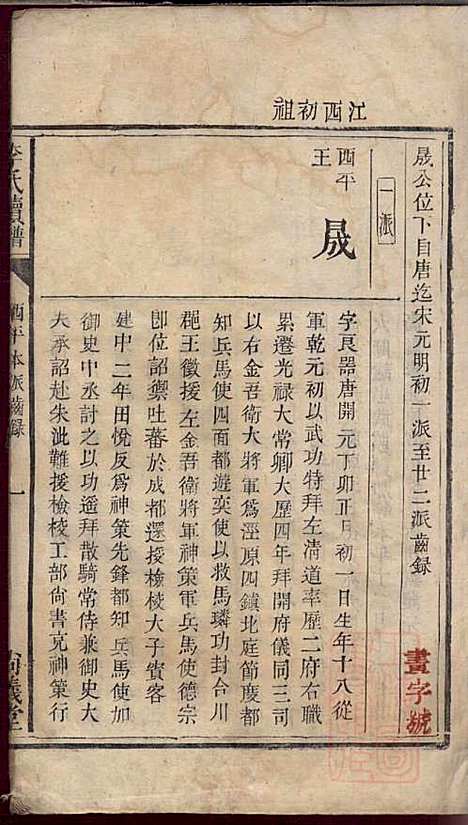 江西初祖
晟公位下自唐迄宋元明初一派至廿二派齒録
畫字號
一派
西平王
晟
字良器唐開元丁卯正月初一日生年十八從
軍乾元初以武功特拜左清道率歷二府右職
累遷光禄大常卿大歷四年拜開府儀同三司
以右金吾衛大將軍爲涇原四鎮北庭節度都
知兵馬使四面都遊奕使以救馬璘功封合川
郡王徵授左金吾衛將軍神策軍兵馬使德宗
卽位詔禦吐蕃於成都還授檢校大子賓客
建中二年田悦反爲神策先鋒都知兵馬使加
御史中丞討之以功遥拜散騎常侍兼御史大
夫承詔赴朱泚難援檢校工部尙書克神策行
李氏續譜
西平本派齒録
一
尚義堂